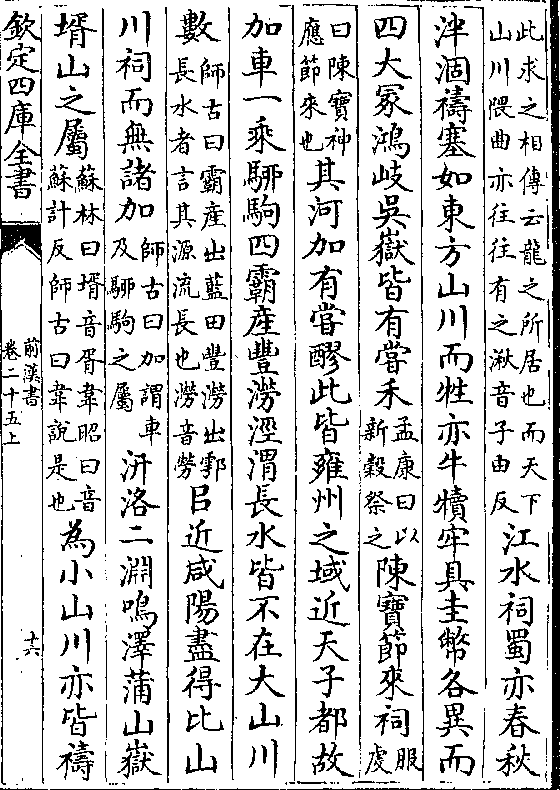 此求之相傳云龍之所居也而天下山川隈曲亦往往有之湫音子由反江水祠蜀亦春秋
泮涸禱塞如東方山川而牲亦牛犢牢具圭幣各異而
四大冡鴻岐吳嶽皆有嘗禾孟康曰以新穀祭之陳寶節來祠服虔
曰陳寶神應節來也其河加有嘗醪此皆雍州之域近天子都故
加車一乘駵駒四霸產豐澇涇渭長水皆不在大山川
數師古曰霸產出藍田豐澇出鄠長水者言其源流長也澇音勞㠯近咸陽盡得比山
川祠而無諸加師古曰加謂車及駵駒之屬汧洛二淵鳴澤蒲山嶽
壻山之屬蘇林曰壻音胥韋昭曰音蘇計反師古曰韋說是也為小山川亦皆禱
欽定四庫全書
前漢書
卷二十五上
十六